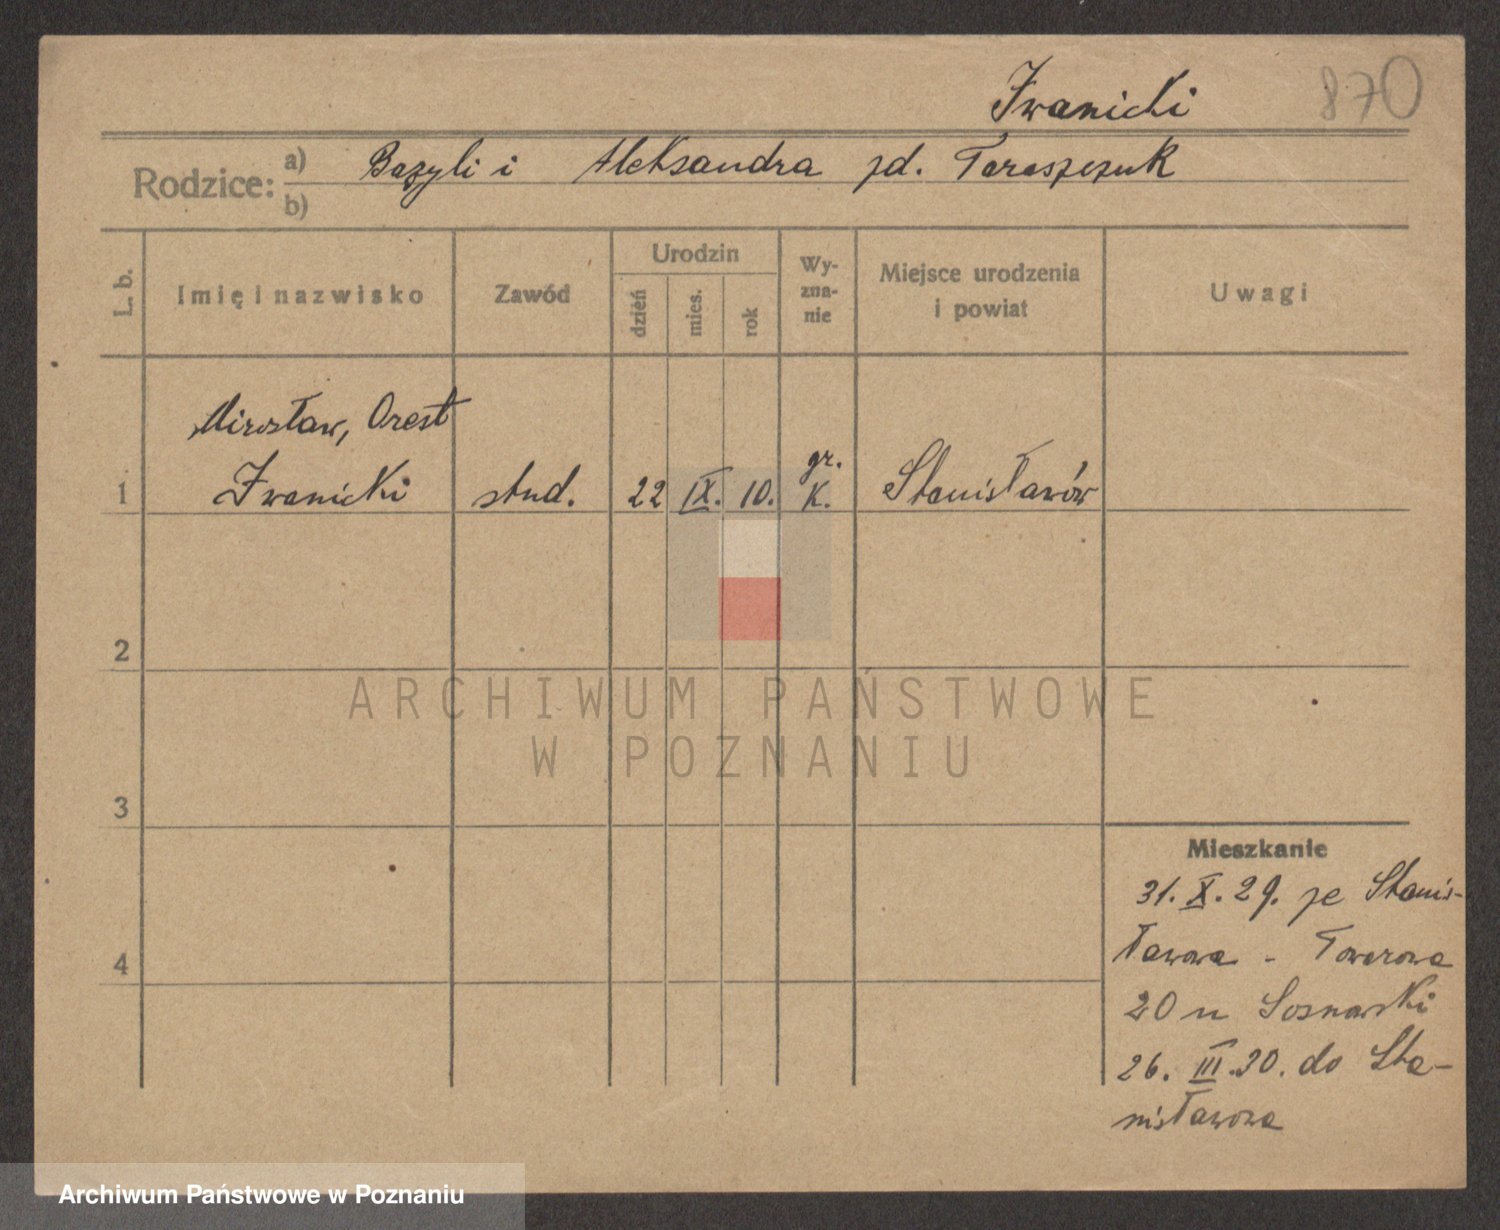 Iwanicki 870
Rodzice: a) Bazyli i Aleksandra zd. Taraszczuk
b)
L. b. Imię i nazwisko Zawód Urodzin dzień mies. rok Wy-zna-nie Miejsce urodzenia i powiat Uwagi
Mirosław, Orest
1 Iwanicki stud. 22 IX. 10. gr. K. Stanisławów
2
ARCHIWUM PAŃSTWOWE
W POZNANIU
3
Mieszkanie
31. X. 29. ze Stanis-
ławowa - Towarowa
4
20 u Sosnowski
26. III. 30. do Sta-
nisławowa
Archiwum Państwowe w Poznaniu